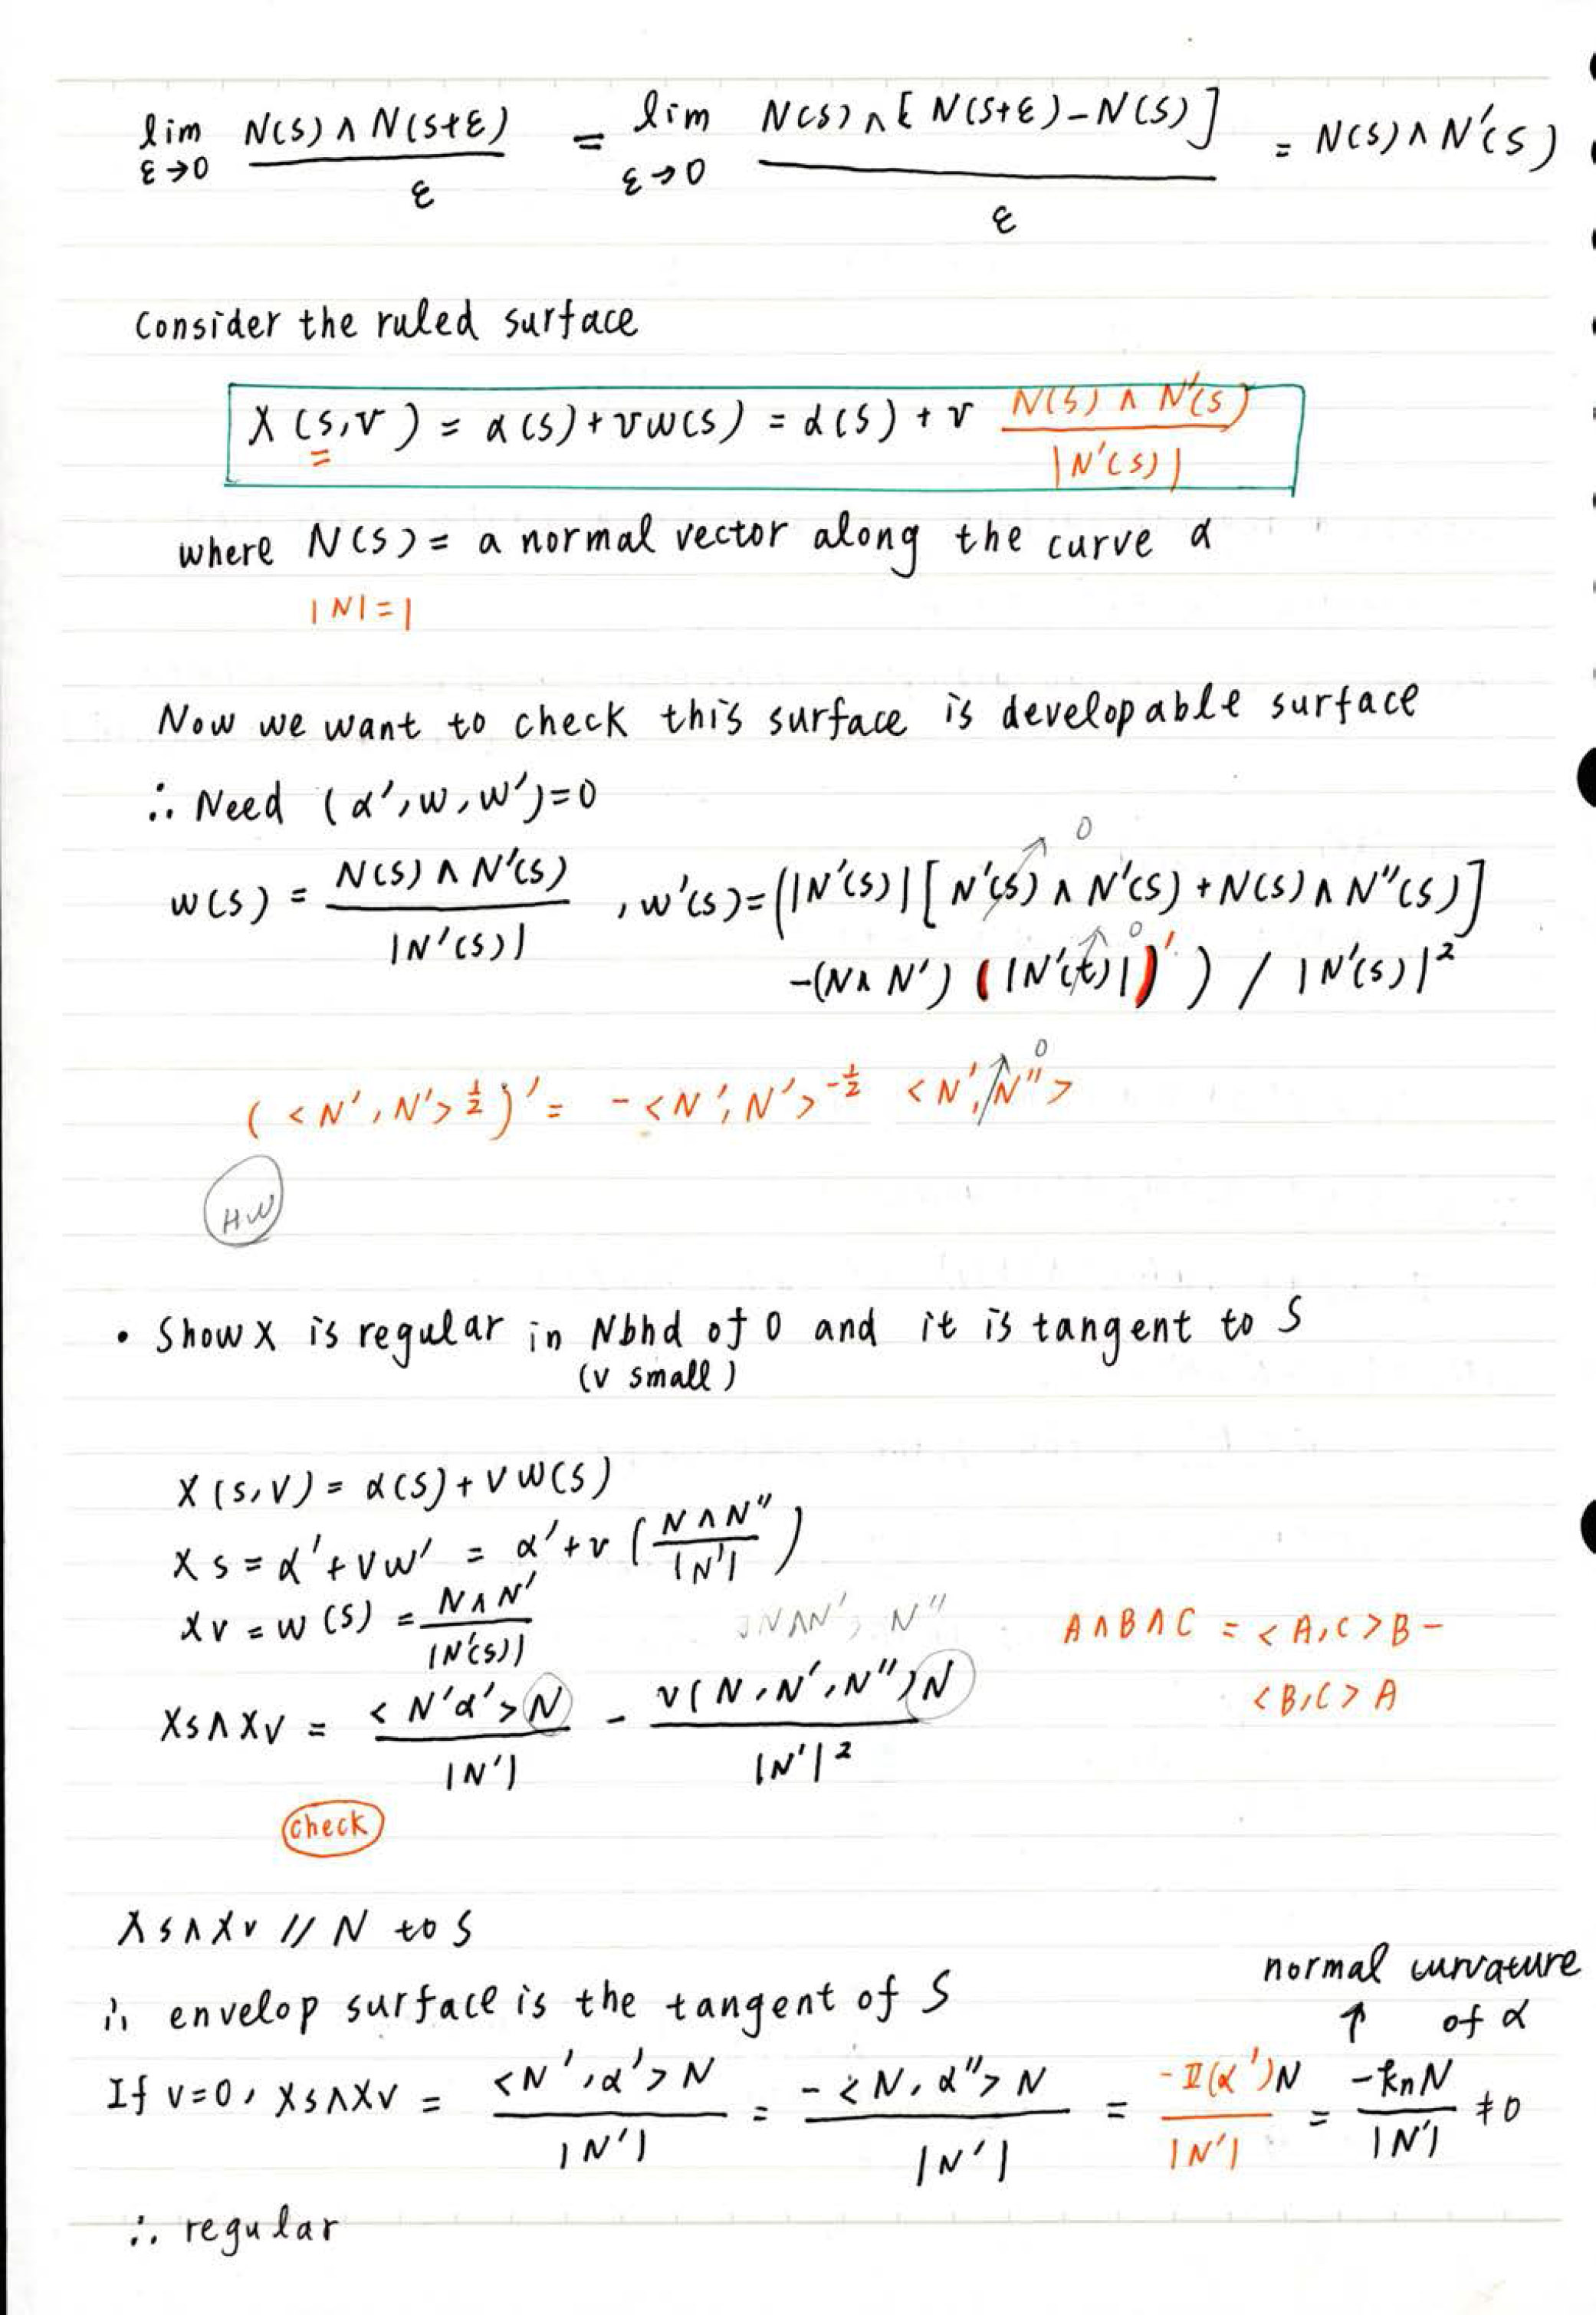 lim_{ε→0} N(s)∧N(s+ε) / ε = lim_{ε→0} N(s)∧[N(s+ε)−N(s)] / ε = N(s)∧N'(s)
Consider the ruled surface
X(s,v) = α(s)+vw(s) = α(s)+v N(s)∧N'(s) / |N'(s)|
where N(s) = a normal vector along the curve α
|N|=1
Now we want to check this surface is developable surface
∴ Need (α',w,w')=0
w(s) = N(s)∧N'(s) / |N'(s)| , w'(s)=(|N'(s)|[N'(s)∧N'(s)+N(s)∧N''(s)]
0
−(N∧N')(|N'(t)|)') / |N'(s)|²
0
(<N',N'>^{1/2})' = −<N',N'>^{-1/2} <N',N''>
0
HW
• Show X is regular in Nbhd of 0 and it is tangent to S
(v small)
X(s,v) = α(s)+vw(s)
Xs = α'+vw' = α'+v(N∧N'' / |N'|)
Xv = w(s) = N∧N' / |N'(s)|
N∧N', N''
A∧B∧C = <A,C>B −
<B,C>A
Xs∧Xv = <N'α'>N / |N'| − v(N,N',N'')N / |N'|²
check
Xs∧Xv // N to S
∴ envelop surface is the tangent of S
normal curvature
↑ of α
If v=0, Xs∧Xv = <N',α'>N / |N'| = −<N,α''>N / |N'| = −II(α')N / |N'| = −knN / |N'| ≠0
∴ regular